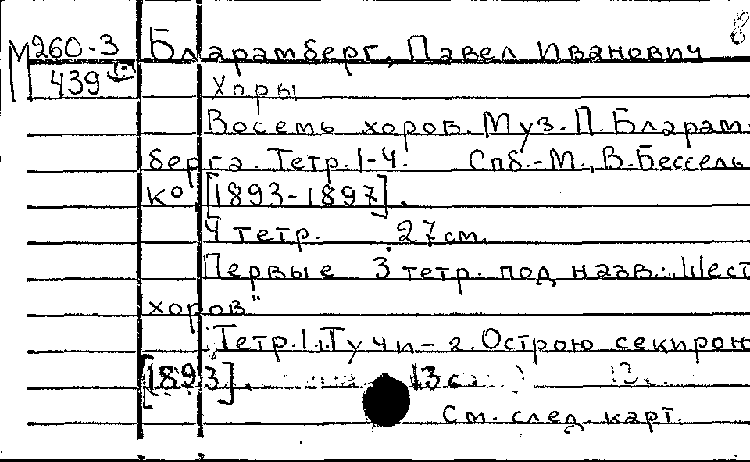 М 260-3 Бларамберг, Павел Иванович 8
439
Хоры
Восемь хоров. Муз. П. Бларам-
берга. Тетр. 1-4. Спб.-М., В. Бессель
К° [1893-1897].
4 тетр. 27 см.
Первые 3 тетр. под назв.: "Шест
хоров"
Тетр. 1. Тучи - 2. Острою секирою
[1893]. 13 с. 
См. след. карт.